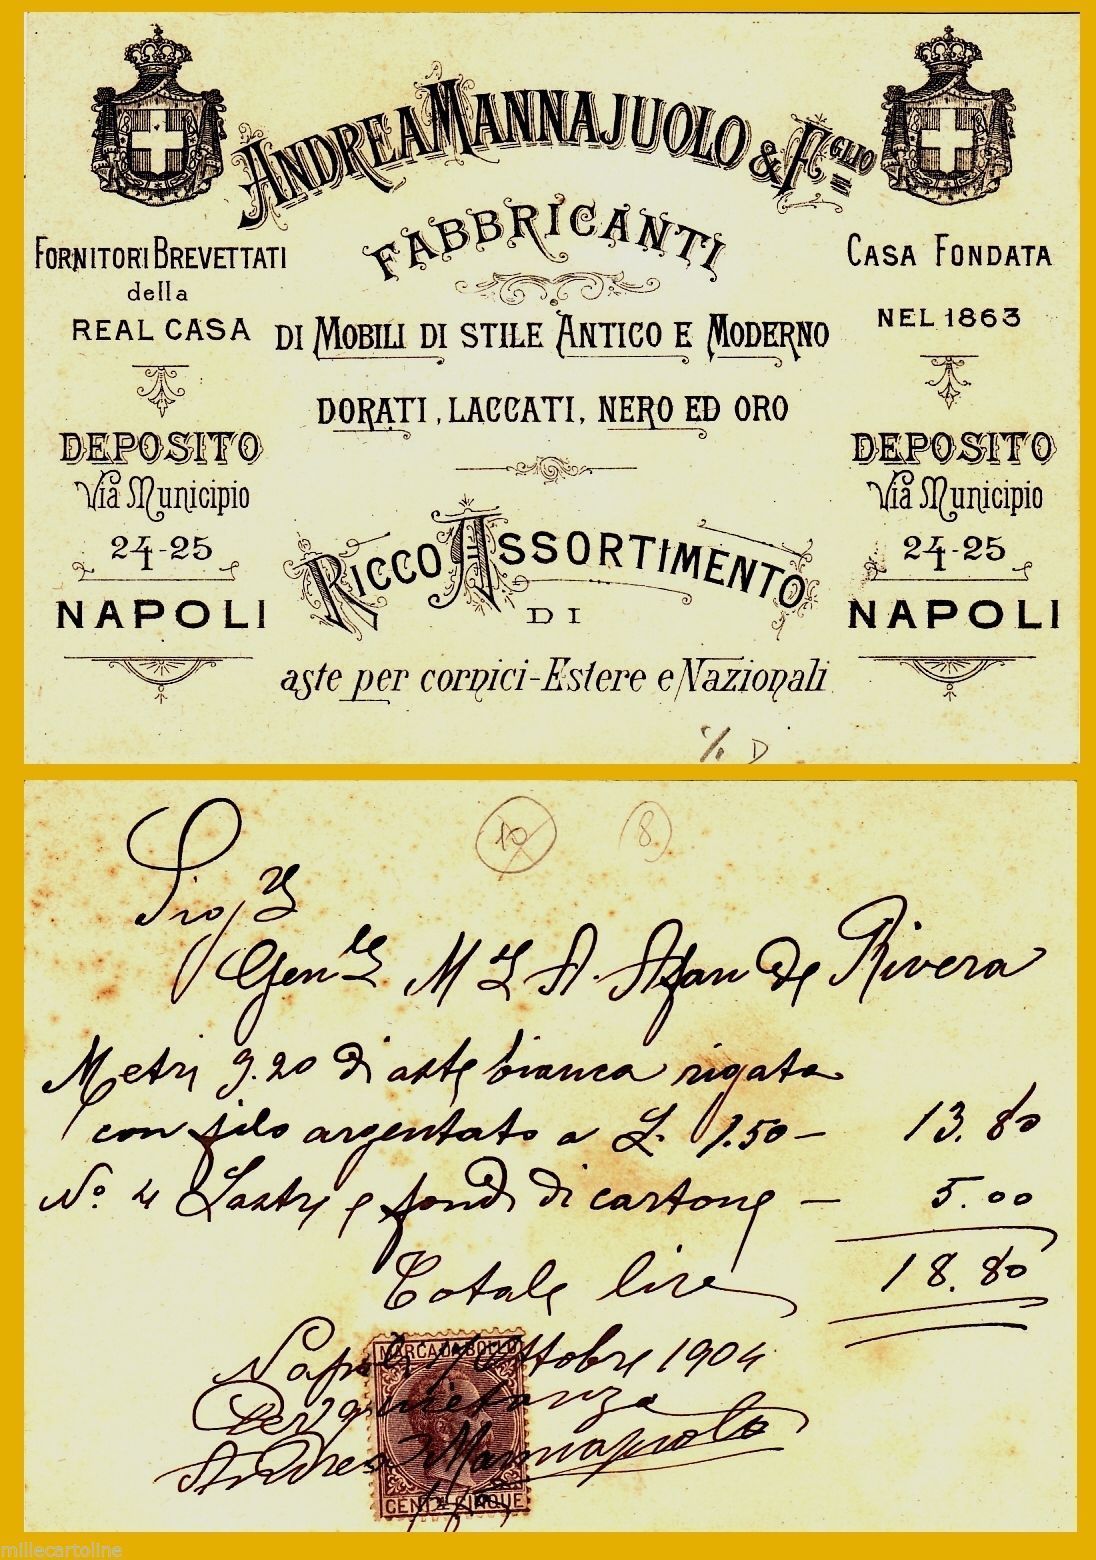 ANDREA MANNAJUOLO & FIGLIO
FABBRICANTI
DI MOBILI DI STILE ANTICO E MODERNO
DORATI, LACCATI, NERO ED ORO
RICCO ASSORTIMENTO
DI
aste per cornici-Estere e Nazionali
FORNITORI BREVETTATI
della
REAL CASA
DEPOSITO
Via Municipio
24-25
NAPOLI
CASA FONDATA
NEL 1863
DEPOSITO
Via Municipio
24-25
NAPOLI
10
8
Gen.le M A. Afan de Rivera
Metri 9.20 di aste bianca rigata
con filo argentato a L. 1.50 — 13.80
No. 4 Lastre e fondi di cartone — 5.00
Totale lire 18.80
Napoli Ottobre 1904
Per quietanza
Andrea Mannajuolo
MARCA DA BOLLO
CENT. CINQUE
millecartoline